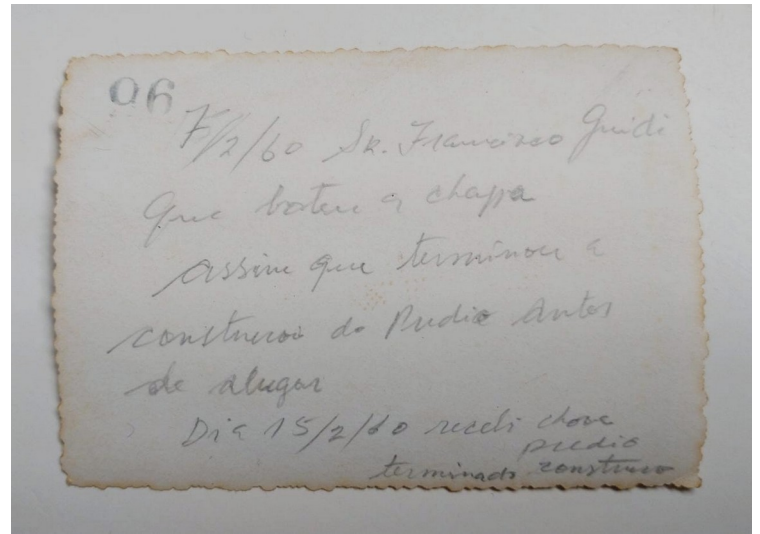 96
7/2/60 Sr. Francisco Guidi
Que bateu a chapa
assim que terminou a
construcoi do Predio Antes
de alugar
Dia 15/2/60 recebi chave
predio
terminado construcao